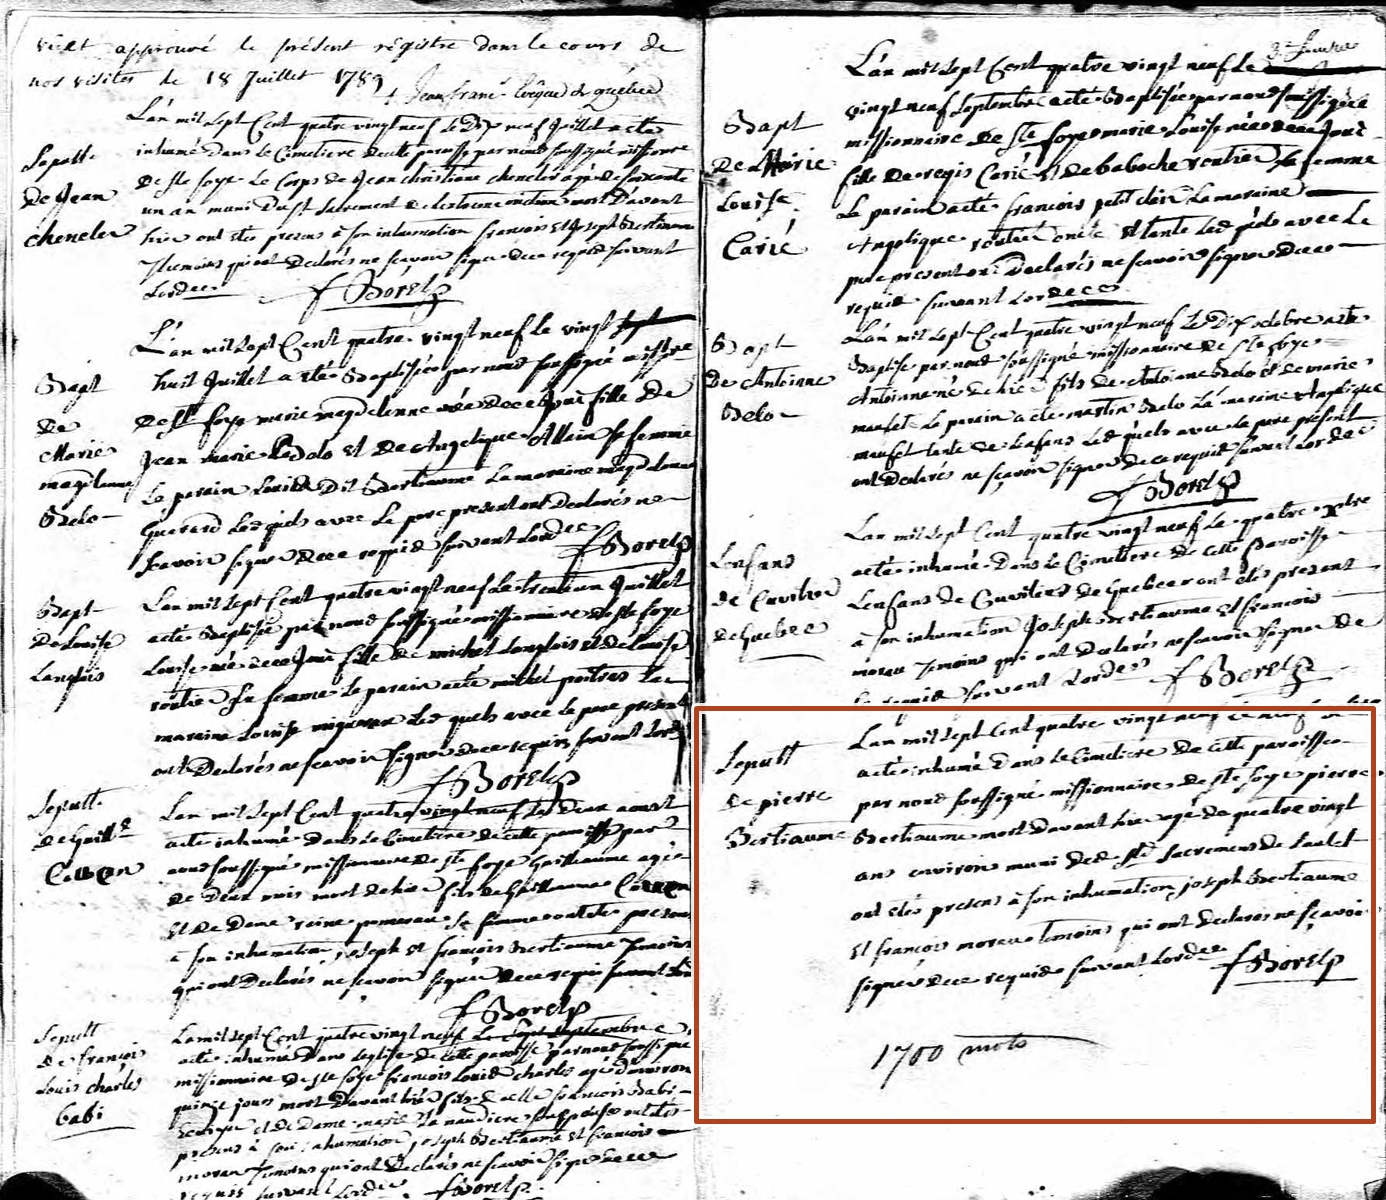 vu et approuvé le présent régistre dans le cours de
nos visites le 18 Juillet 1789
+ Jean franc. Evêque de québec
L'an mil sept Cent quatre vingt neuf le Dix neuf Juillet a été
Sepult.
de Jean
chencler
inhumé dans le Cimetiere de cette paroisse par nous soussigné missionre
de Ste foye le Corps de Jean christiane chencler agé de soixante
un an muni du st sacrement de lextreme onction mort d'avant
hier ont etes presens à son inhumation francois et Joseph Bertiaume
Temoins qui ont Declarés ne scavoir signer de ce requis suivant
Lordce
f Borel p
Bapt
De
Marie
magdlenne
Belo
L'an mil sept Cent quatre vingt neuf le vingt
huit Juillet a eté Baptisée par nous soussigné misstre
de Ste foye marie magdelenne née de ce Jour fille de
Jean marie Bedolo et de Angelique Allain sa femme
Le parain Louis Dit Bertiaume La maraine magdelenne
Guerard Lesquels avec Le pere present ont Declarés ne
scavoir signer de ce requis suivant Lordce
f Borel p
Bapt
De Louise
Langlois
L'an mil sept Cent quatre vingt neuf le trente un Juillet
a été Baptisée par nous soussigné missionaire de Ste foye
Louise née de ce Jour fille de michel Langlois et de Louise
routier sa femme Le parain a été michel poitras La
maraine Louise migneron Les quels avec le pere present
ont Declarés ne scavoir signer de ce requis suivant Lordce
f Borel p
Sepult.
de Guille
L'an mil sept Cent quatre vingt neuf Le Deux aoust
a été inhumé dans Le Cimetiere de cette paroisse par
nous soussigné missionnaire de Ste foye Guillaume agée
de Deux mois mort de hier fils de Guillaume
et de Dame reine sa femme ont etes presens
à son inhumation joseph et françois Bertiaume Temoins
qui ont Declarés ne scavoir signer de ce requis suivant Lord
f Borel p
Sepult
de françois
Louis charles
Gabi
L'an mil sept Cent quatre vingt neuf Le Sept septembre
a été inhumé dans Leglise de cette paroisse par nous soussigné
missionnaire de Ste foye françois Louis charles agé d'environ
quinze jours mort Davant hier fils de françois Gabi
Ecuyer et de Dame marie La naudiere son epouse ont etes
presens à son inhumation joseph Bertiaume et francois
moreau Temoins qui ont Declarés ne scavoir signer de ce
requis suivant Lordce f Borel p
L'an mil sept Cent quatre vingt neuf Le
Bapt
De Marie
Louise
Carié
vingt neuf Septembre a eté Baptisée par nous soussigné
missionaire de Ste foye marie Louise née de ce Jour
fille de regis Carié et de baboche routier sa femme
Le parain a été francois petit clair La maraine
Angelique routier oncle et tante Les quels avec Le
pere present ont Declarés ne scavoir signer de ce
requis suivant Lordce
Bapt
De Antoinne
Belo
L'an mil sept Cent quatre vingt neuf Le Dix octobre a été
Baptisé par nous soussigné missionnaire de Ste foye
Antoinne né de hier fils de Antoiane Belo et de marie
maufet Le parain a été martin Belo La marine Angelique
maufet tante de Lenfans Les quels avec le pere présent
ont Declarés ne scavoir signer de ce requis suivant Lordce
f Borel p
Lenfans
de Cuvilier
de Quebec
L'an mil sept Cent quatre vingt neuf Le quatre
a été inhumé dans Le Cimetiere de cette Paroisse
Lenfans de Cuviliers de Quebec ont etés present
à son inhumation Joseph Bertiaume et francois
moreau Temoins qui ont Declarés ne scavoir signer de
ce requis suivant Lordce f Borel p
Sepult
de pierre
Bertiaume
L'an mil sept Cent quatre vingt neuf Le neuf
a été inhumé dans Le Cimetiere de cette paroisse
par nous soussigné missionnaire de Ste foye pierre
Bertiaume mort davant hier agé de quatre vingt
ans environ muni des Sts Sacremens de Lautel
ont etés presens à son inhumation joseph Bertiaume
et françois moreau temoins qui ont declarés ne sçavoir
signer de ce requis suivant Lordce f Borel p
1700 mots